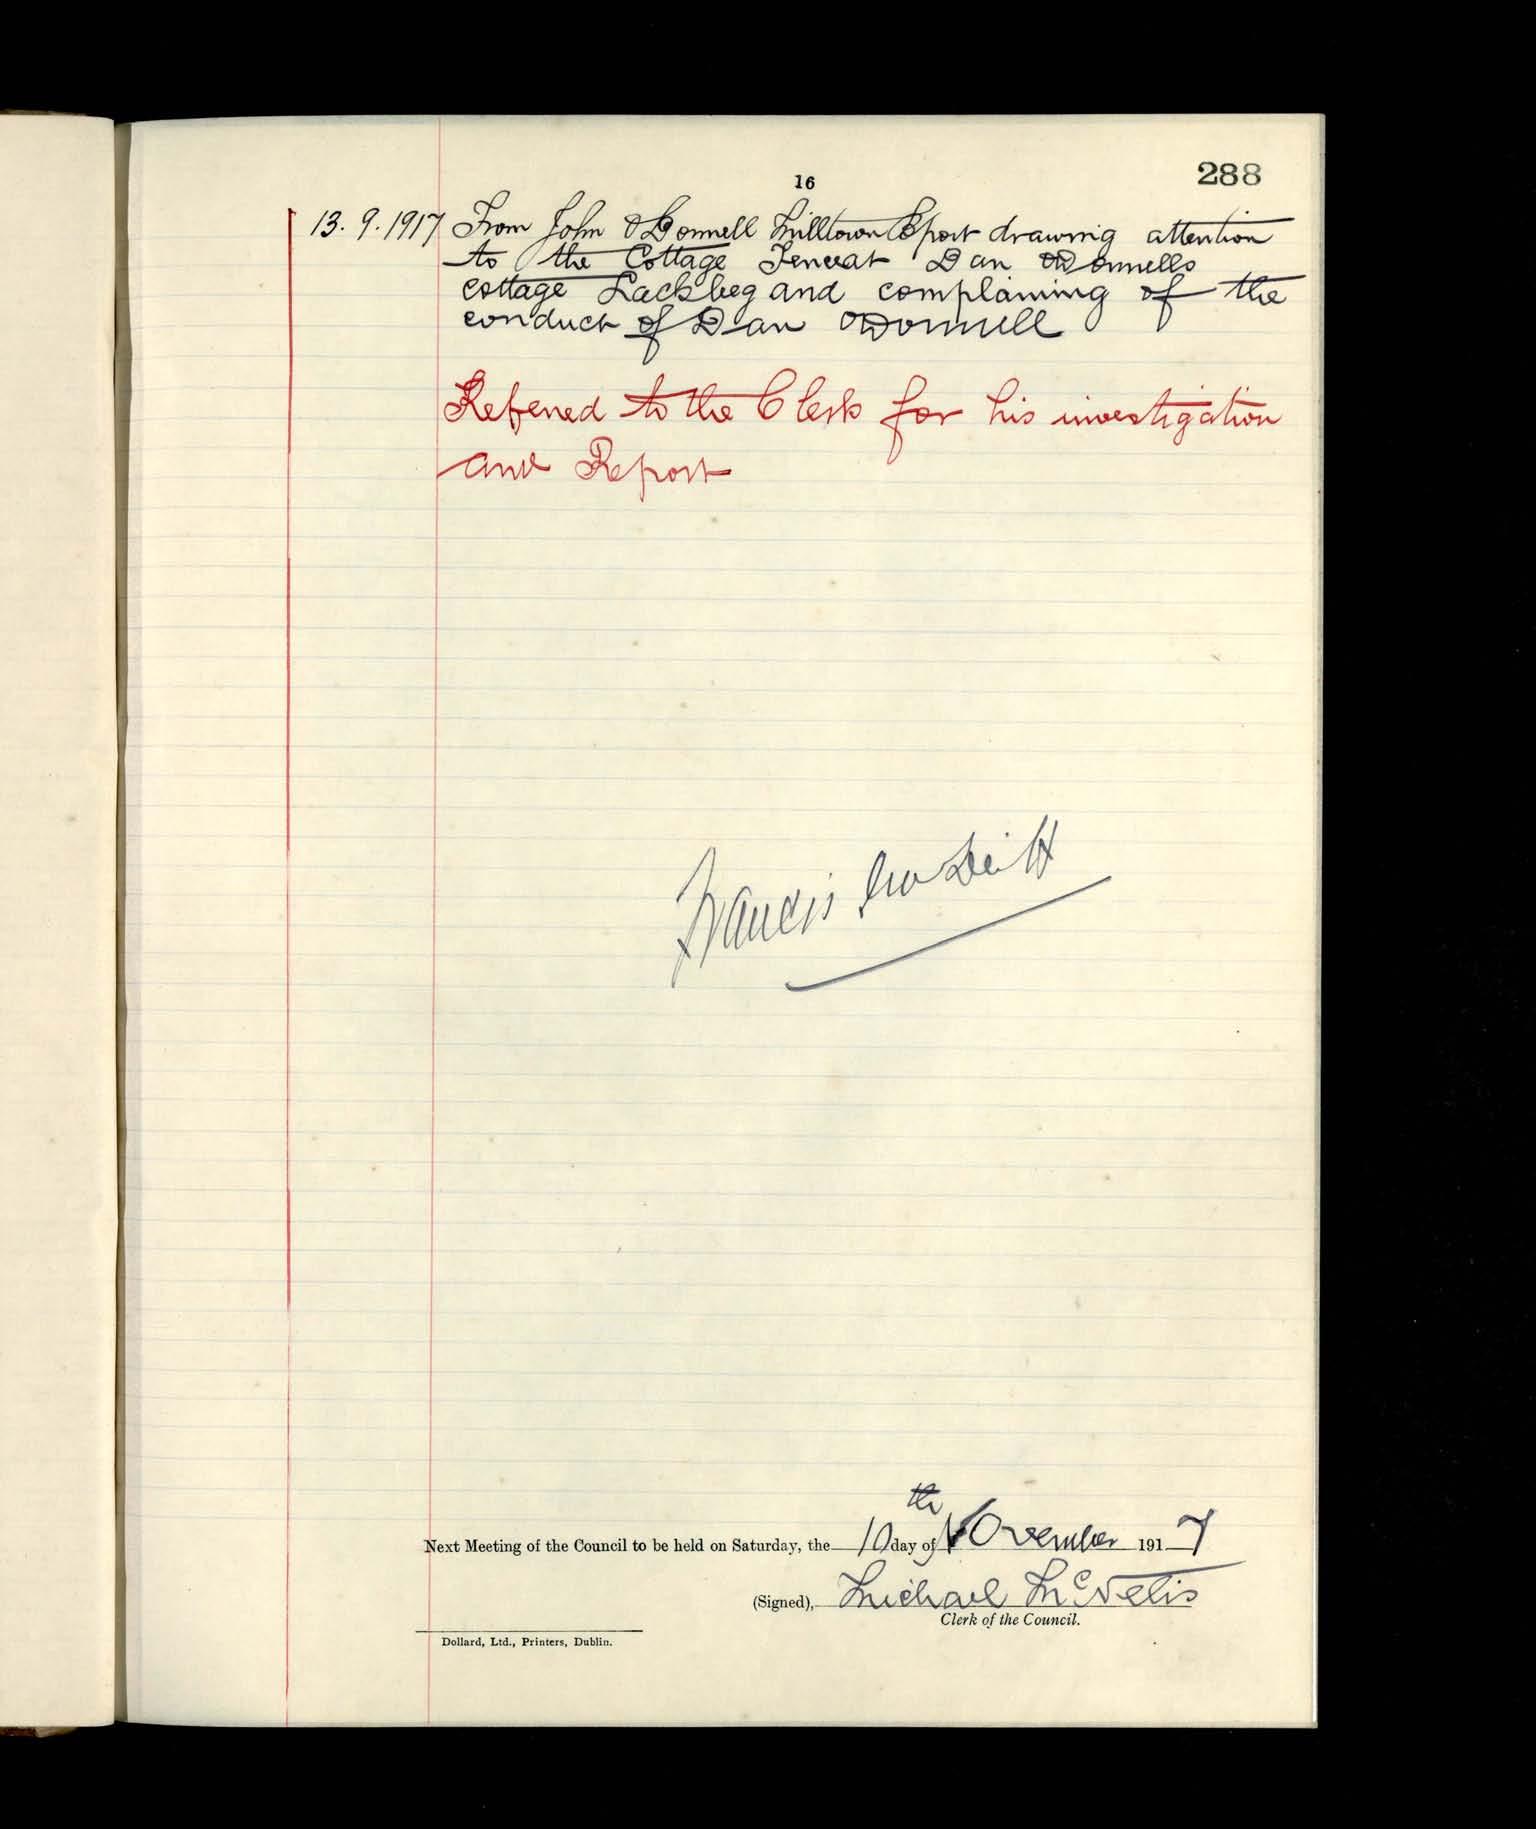 288
16
13. 9. 1917 From John O'Donnell Milltown drawing attention
to the Cottage Dan O'Donnells
cottage Lackbeg and complaining of the
conduct of Dan O'Donnell
Referred to the Clerk for his investigation
and Report
Francis
Next Meeting of the Council to be held on Saturday, the 10th day of November 1917
(Signed), Michael McNelis
Clerk of the Council.
Dollard, Ltd., Printers, Dublin.